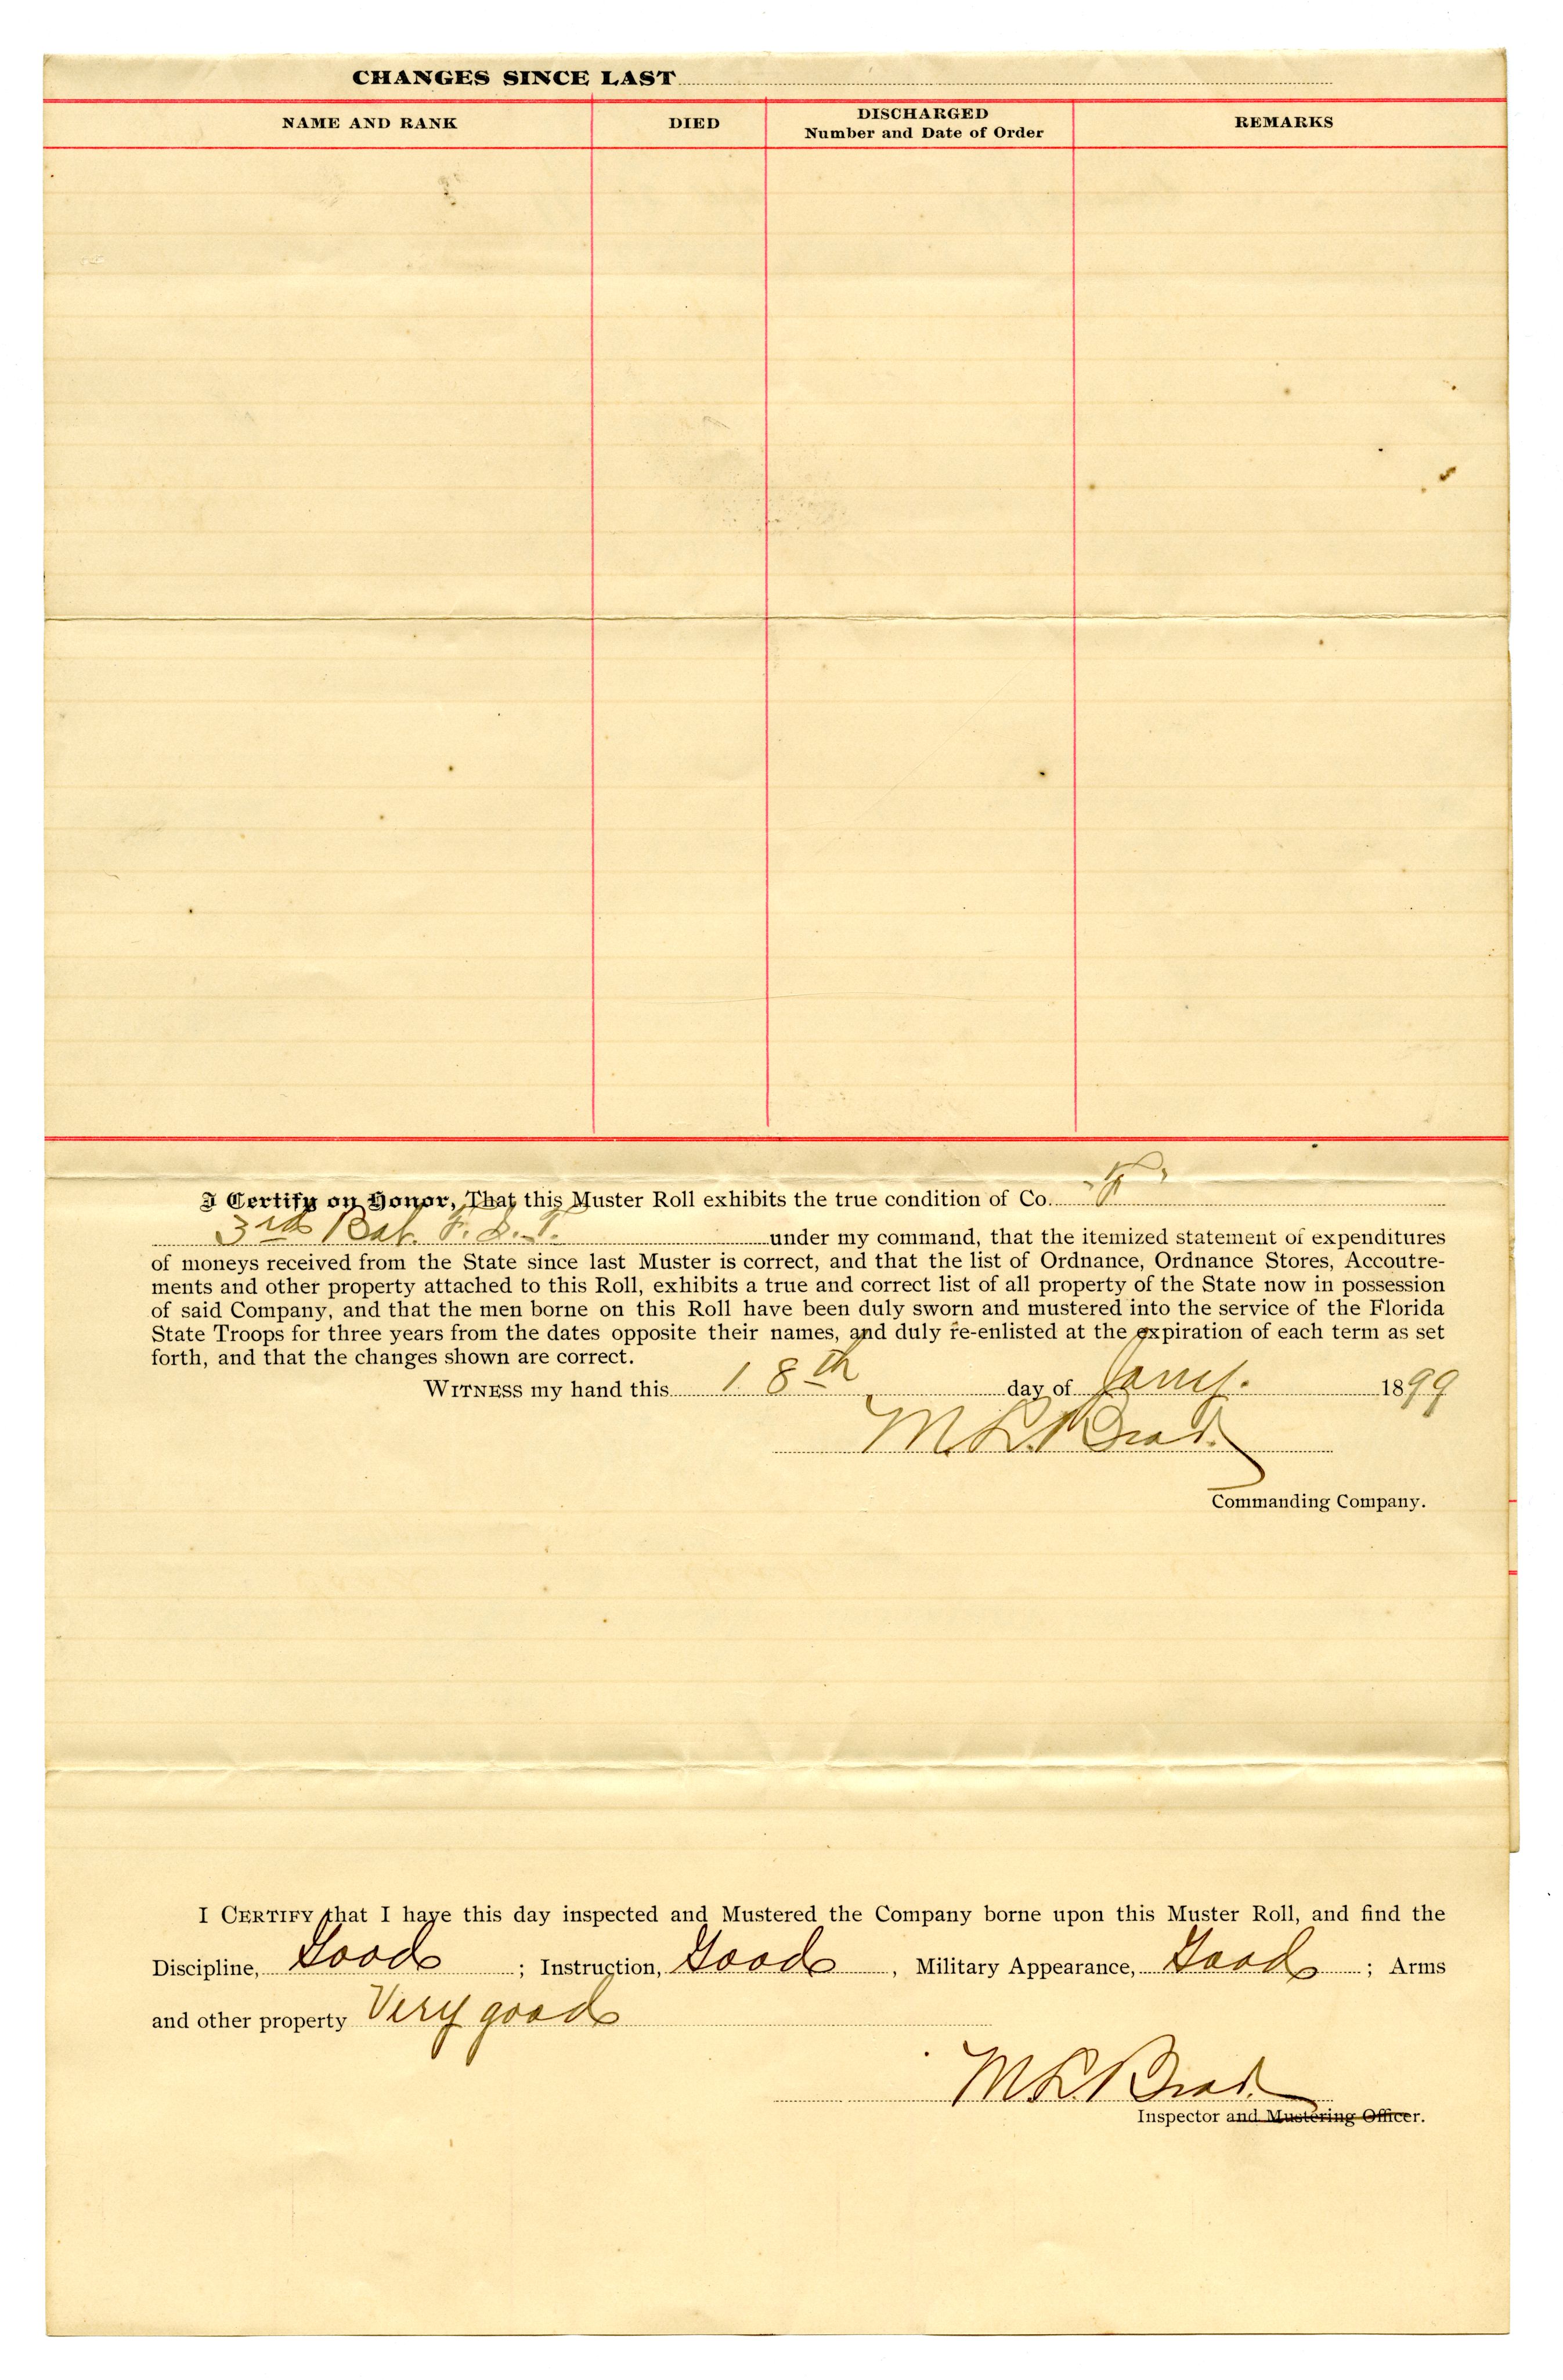 CHANGES SINCE LAST
NAME AND RANK DIED DISCHARGED Number and Date of Order REMARKS
I Certify on Honor, That this Muster Roll exhibits the true condition of Co. "F"
3rd Bat. F. S. T. under my command, that the itemized statement of expenditures
of moneys received from the State since last Muster is correct, and that the list of Ordnance, Ordnance Stores, Accoutre-
ments and other property attached to this Roll, exhibits a true and correct list of all property of the State now in possession
of said Company, and that the men borne on this Roll have been duly sworn and mustered into the service of the Florida
State Troops for three years from the dates opposite their names, and duly re-enlisted at the expiration of each term as set
forth, and that the changes shown are correct.
WITNESS my hand this 18th day of Jany. 1899
M. L.
Commanding Company.
I CERTIFY that I have this day inspected and Mustered the Company borne upon this Muster Roll, and find the
Discipline, Good ; Instruction, Good , Military Appearance, Good ; Arms
and other property Very good
M. L.
Inspector and Mustering Officer.